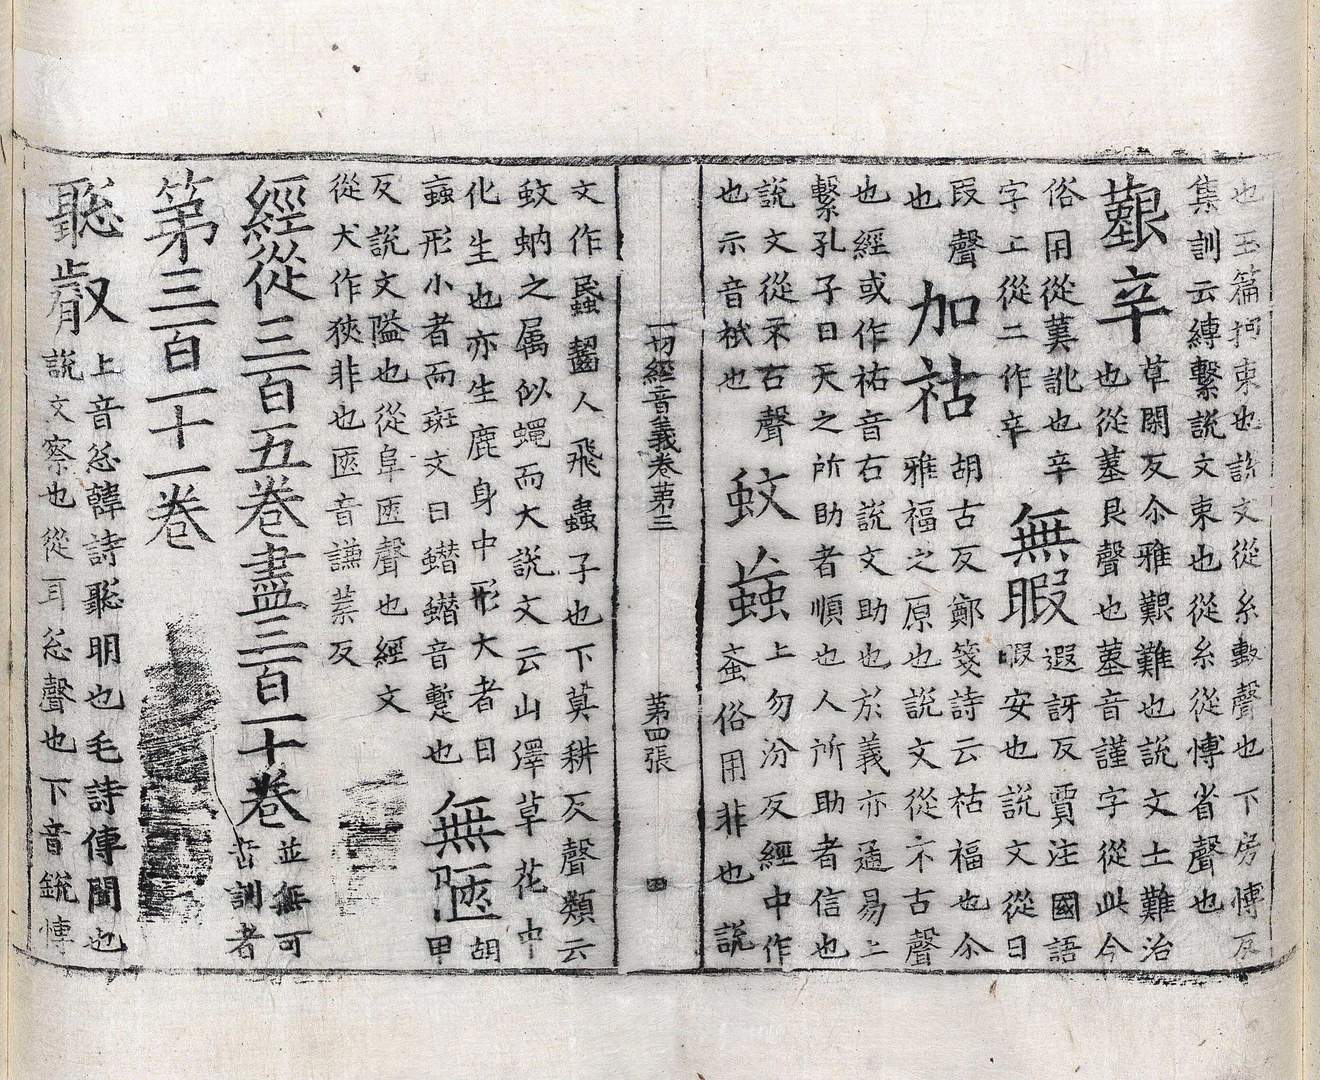 也玉篇拘束也說文從糸㲉聲也下房愽反
集訓云縛繫說文束也從糸從愽省聲也
艱辛 草閑反尒雅艱難也說文土難治
也從堇艮聲也堇音謹字從此今
俗用從𦰩訛也辛
字上從二作辛 無暇 遐訝反賈注國語
暇安也說文從日
叚聲
也 加祜 胡古反鄭箋詩云祜福也尒
雅福之原也說文從示古聲
也經或作祐音右說文助也於義亦通易上
繫孔子曰天之所助者順也人所助者信也
說文從示右聲
也示音祇也 蚊䖟 上勿汾反經中作
䖟俗用非也說
一切經音義卷第三 第四張
文作䗈齧人飛蟲子也下莫耕反聲類云
蚊蚋之属似蠅而大說文云山澤草花中
化生也亦生鹿身中形大者曰
䖟形小者而斑文曰蠽蠽音蹔也 無陿 胡
甲
反說文隘也從阜匧聲也經文
從犬作狹非也匧音謙葉反
經從三百五卷盡三百一十卷 並無可
音訓者
第三百一十一卷
聦叡 上音怱韓詩聦明也毛詩傳聞也
說文察也從耳怱聲也下音銳愽